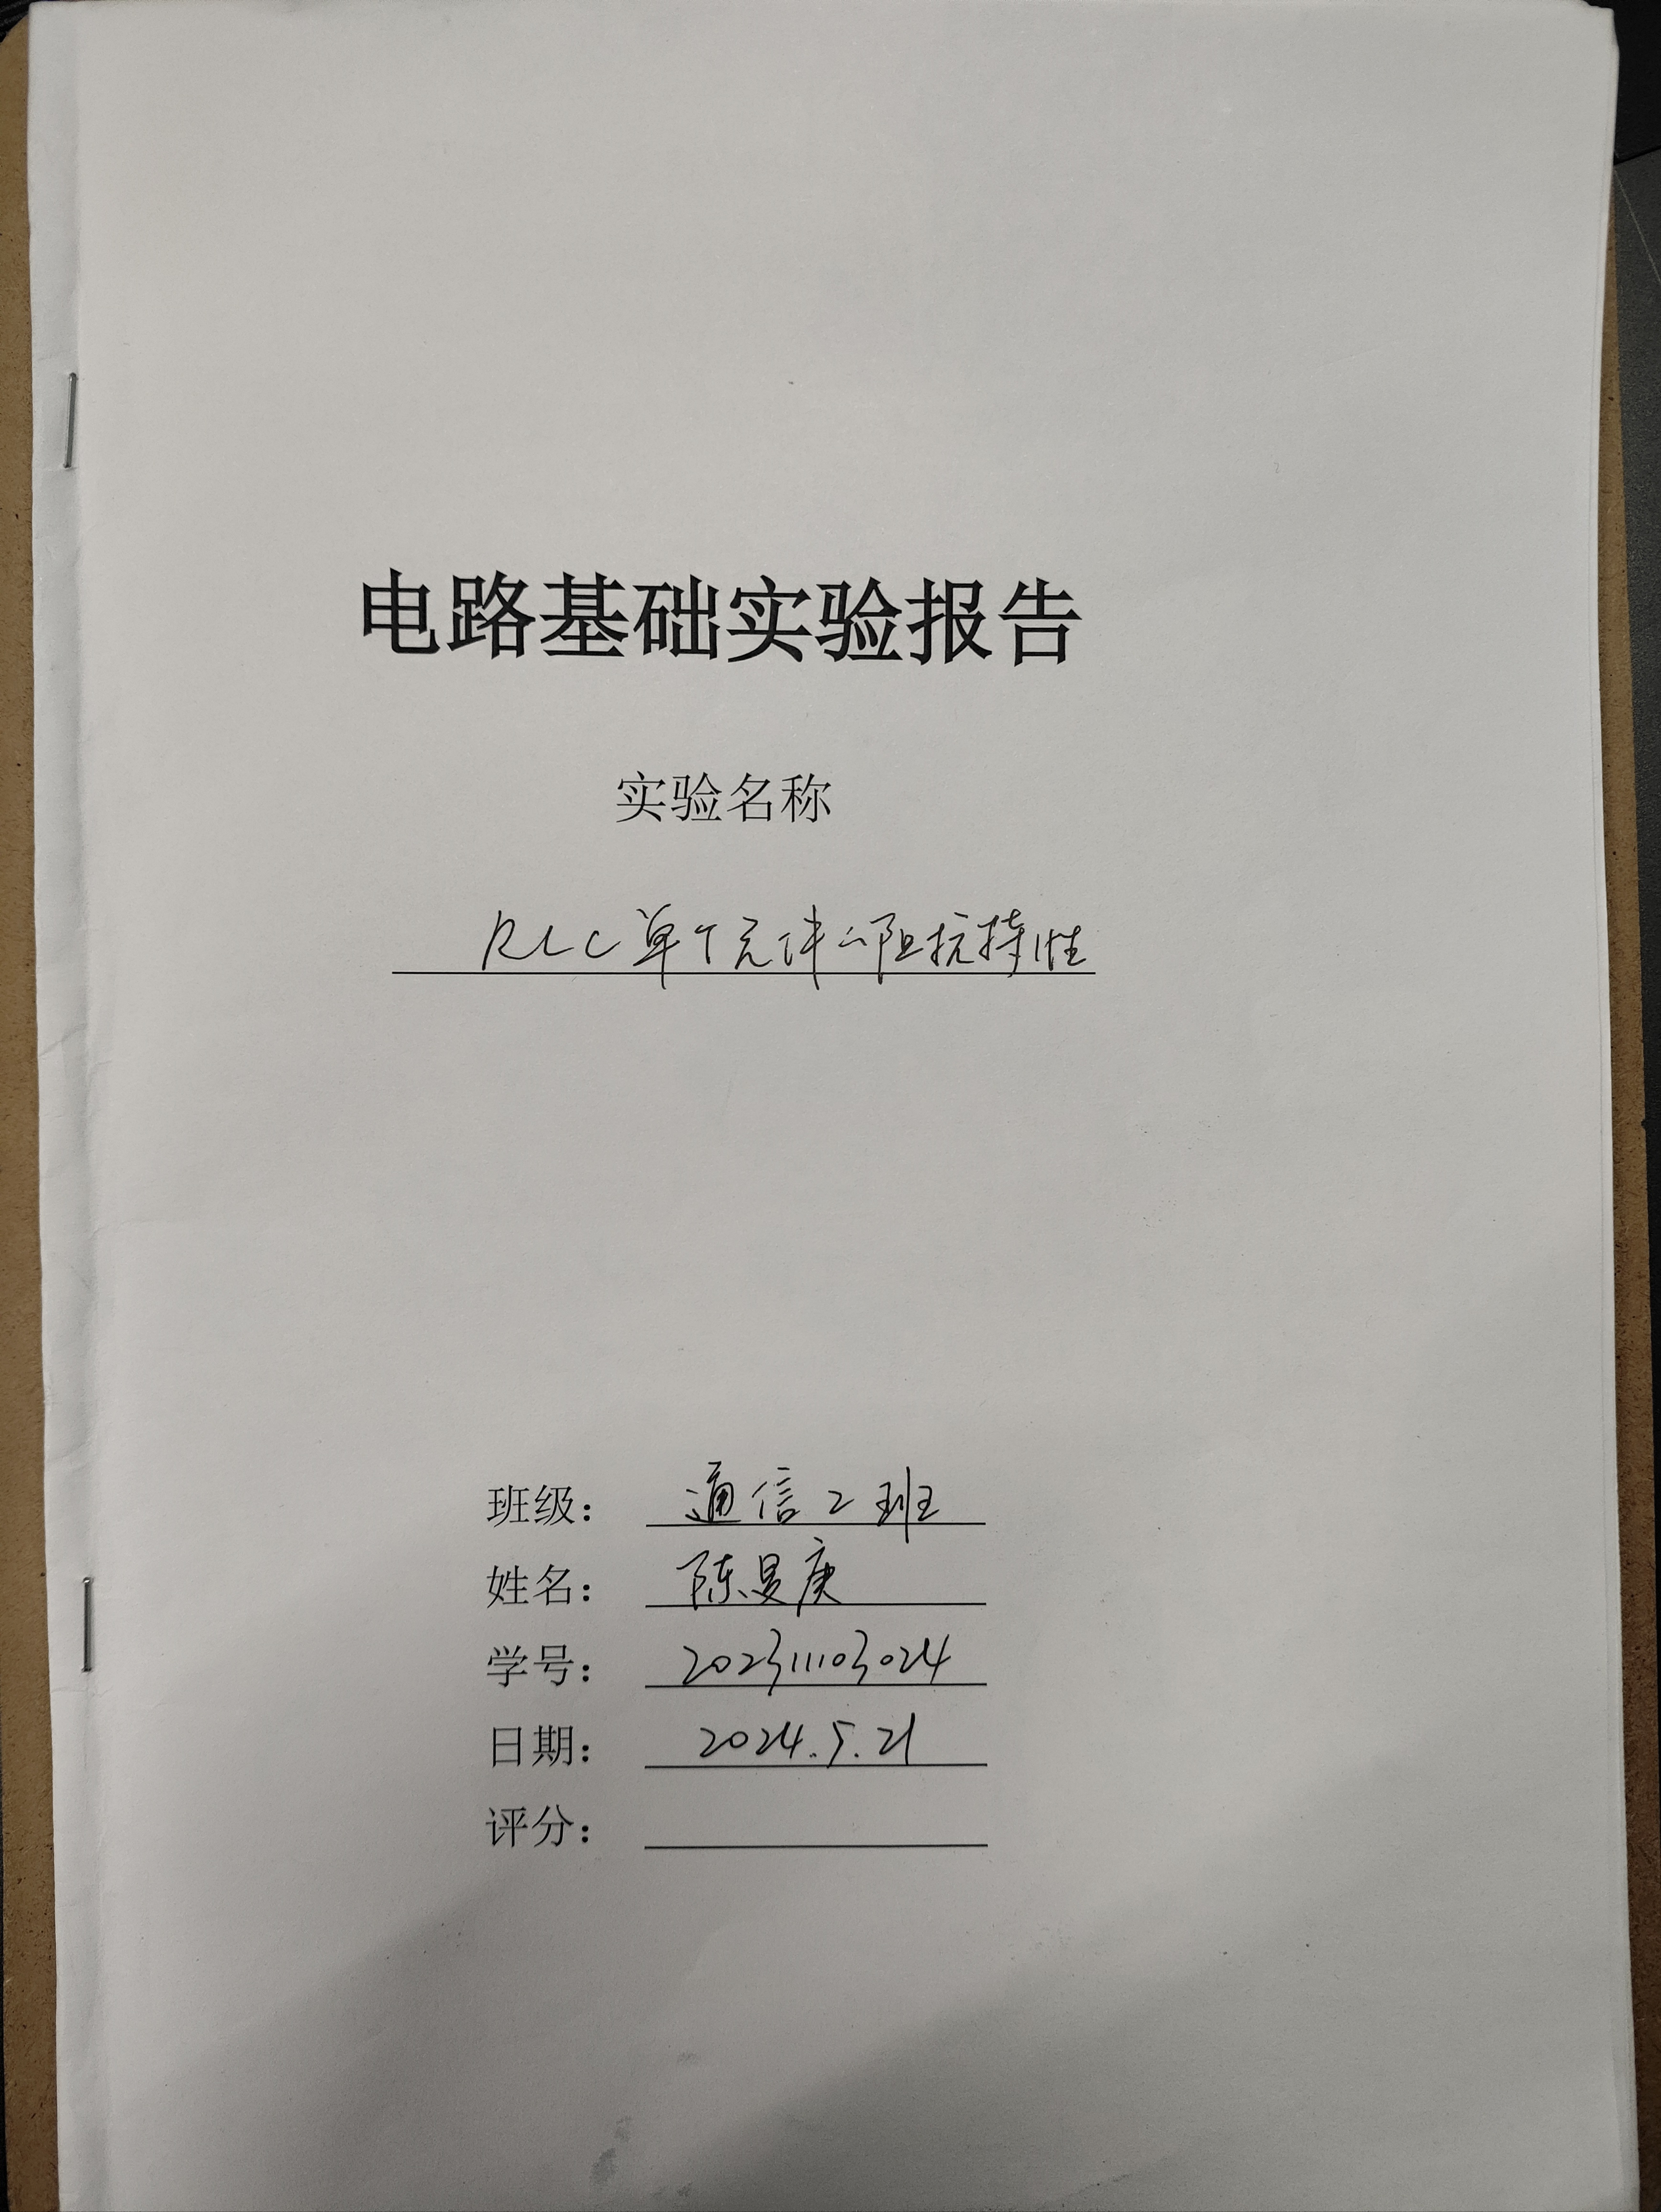 电路基础实验报告
实验名称
RLC单个元件的阻抗特性
班级： 通信2班
姓名： 陈旻庚
学号： 202311103024
日期： 2024.5.21
评分：